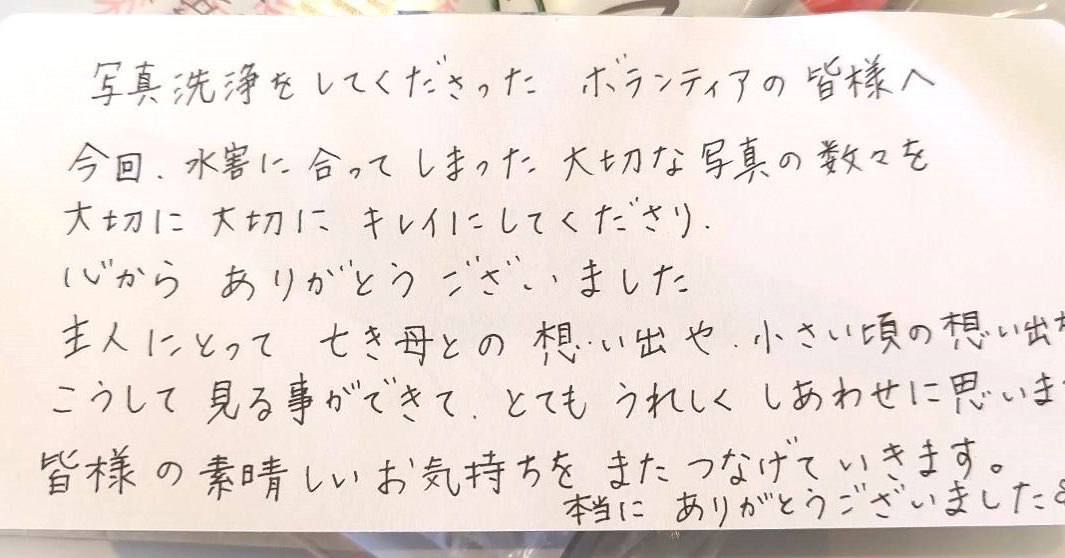 写真洗浄をしてくださった ボランティアの皆様へ
今回、水害に合ってしまった大切な写真の数々を
大切に大切に キレイにしてくださり、
心から ありがとう ございました
主人にとって 亡き母との 想い出や、小さい頃の想い出が
こうして 見る事ができて、とても うれしく しあわせに思いま
皆様の素晴しいお気持ちを またつなげていきます。
本当に ありがとうございました